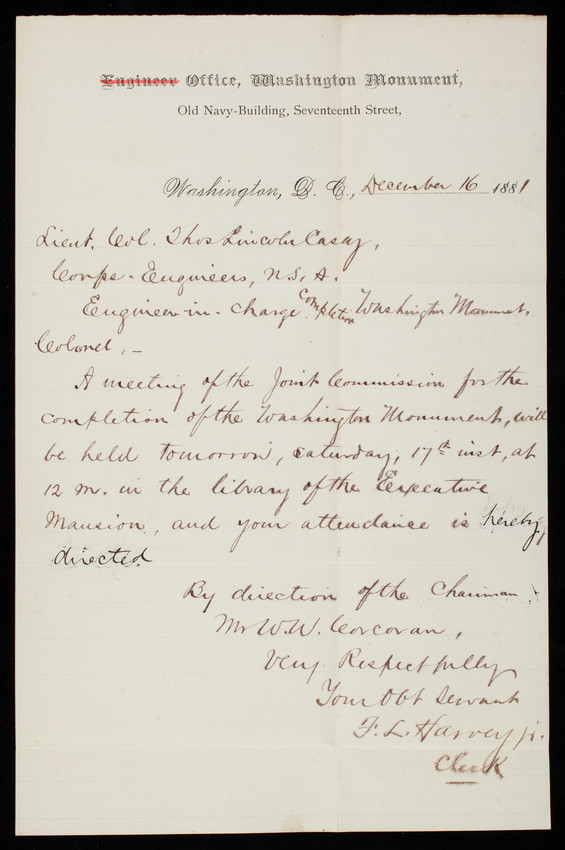 Engineer Office, Washington Monument,
Old Navy-Building, Seventeenth Street,
Washington, D. C., December 16 1881
Lieut. Col. Thos Lincoln Casey,
Corps-Engineers, U.S.A.
Engineer-in-charge Completion Washington Monument.
Colonel,—
A meeting of the Joint Commission for the
completion of the Washington Monument, will
be held tomorrow, Saturday, 17th inst, at
12 m. in the library of the Executive
Mansion, and your attendance is hereby
directed
By direction of the Chairman
Mr W.W. Corcoran,
Very Respectfully
Your Obt Servant
F. L. Harvey jr.
Clerk